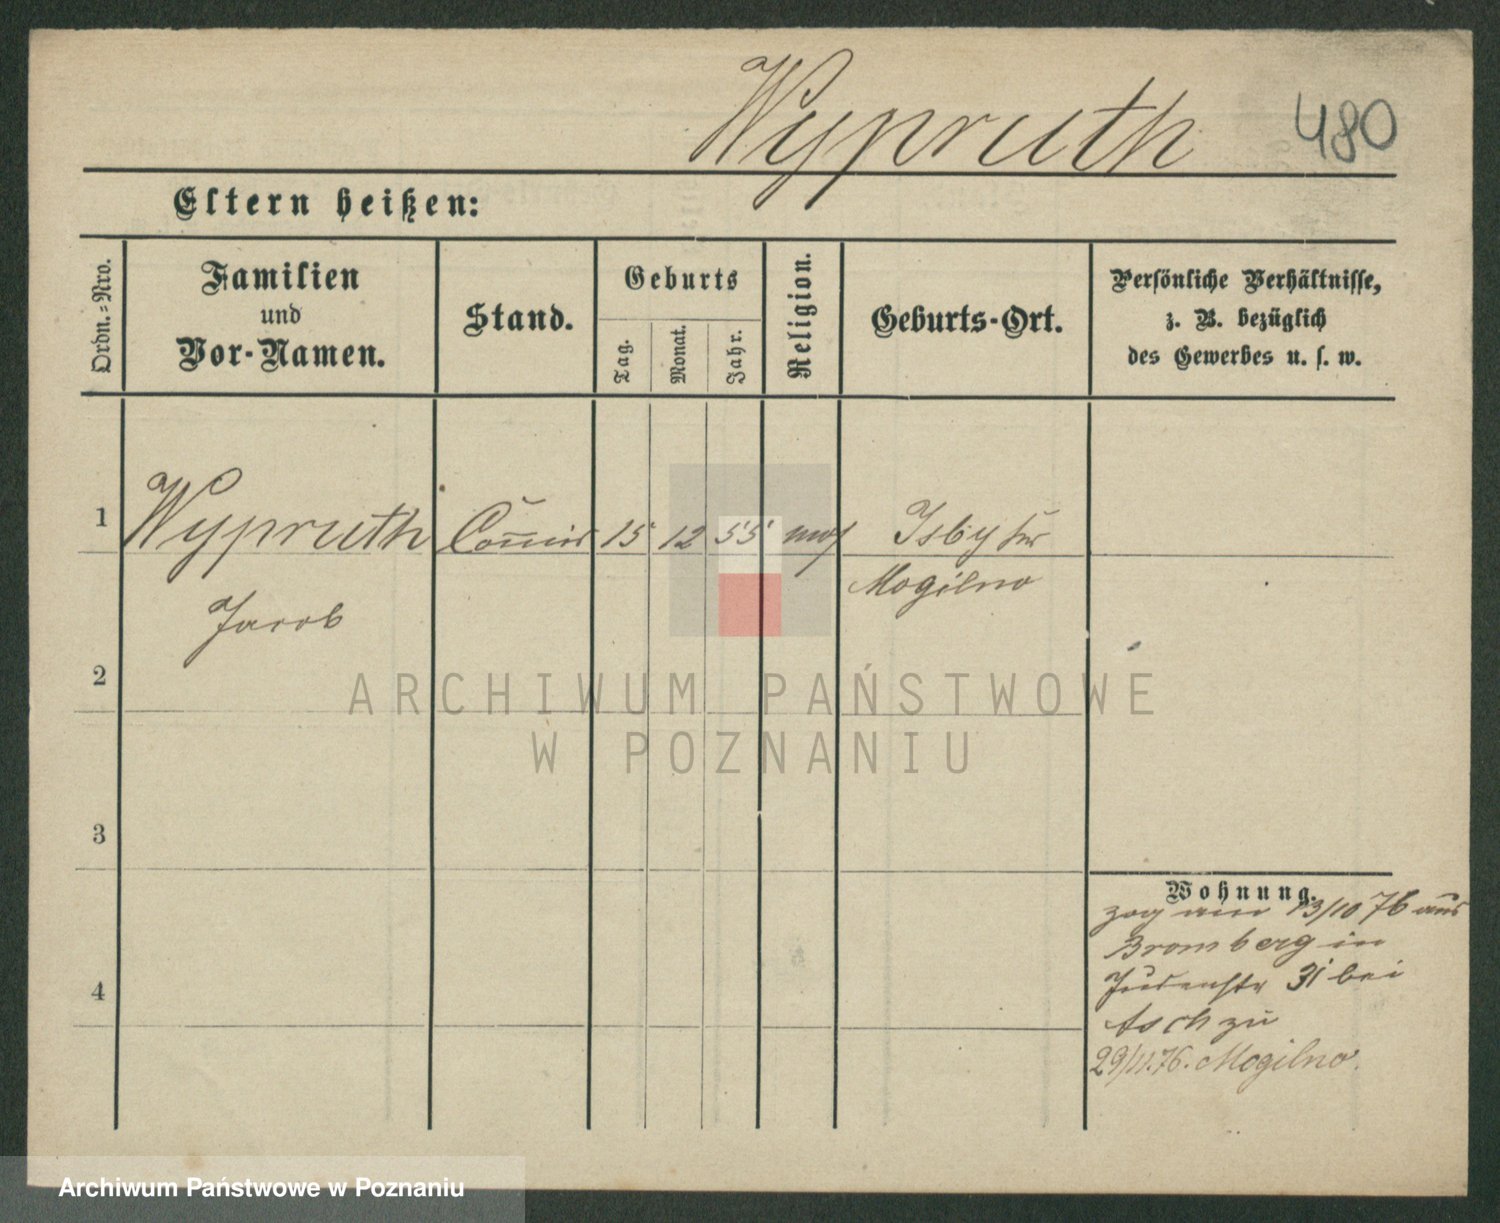 Wypruth 480
Eltern heißen:
Ordn.-Nro.
Familien
und
Vor-Namen.
Stand.
Geburts
Tag.
Monat.
Jahr.
Religion.
Geburts-Ort.
Persönliche Verhältnisse,
z. B. bezüglich
des Gewerbes u. s. w.
1 Wypruth Commis 15 12 55 mos
Mogilno
Jacob
2
ARCHIWUM PAŃSTWOWE
W POZNANIU
3
Wohnung.
zog am 13/10 76 aus
Bromberg in
Judenstr 31 bei
Asch zu
4
29/11.76. Mogilno.
Archiwum Państwowe w Poznaniu